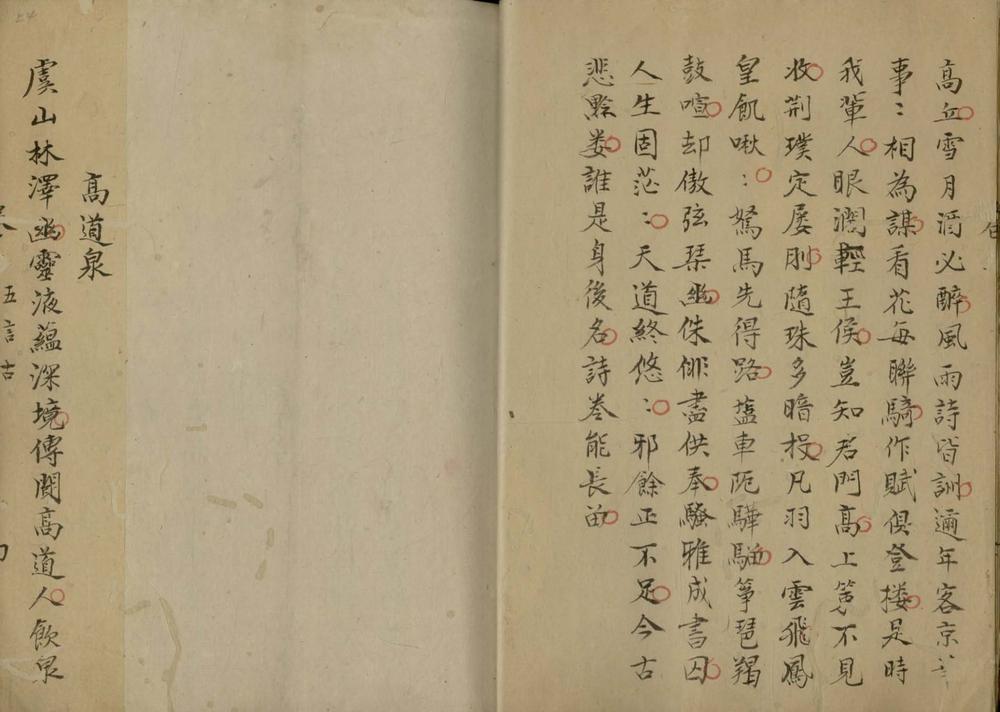 高丘雪月酒必醉風雨詩皆訓邇年客京
事〻相為謀看花每聯騎作賦俱登樓是時
我輩人眼濶輕王侯豈知君門高上第不見
收荆璞定屢刖隨珠多暗投凡羽入雲飛鳳
皇飢啾〻駑馬先得路塩車阨驊騮箏琶羯
鼓喧却傲弦琹幽侏俳盡供奉騷雅成書囚
人生固茫〻天道終悠〻邪餘正不足今古
悲黔婁誰是身後名詩卷能長留
高道泉
虞山林澤幽靈液蘊深境傳聞高道人飲泉
五言古